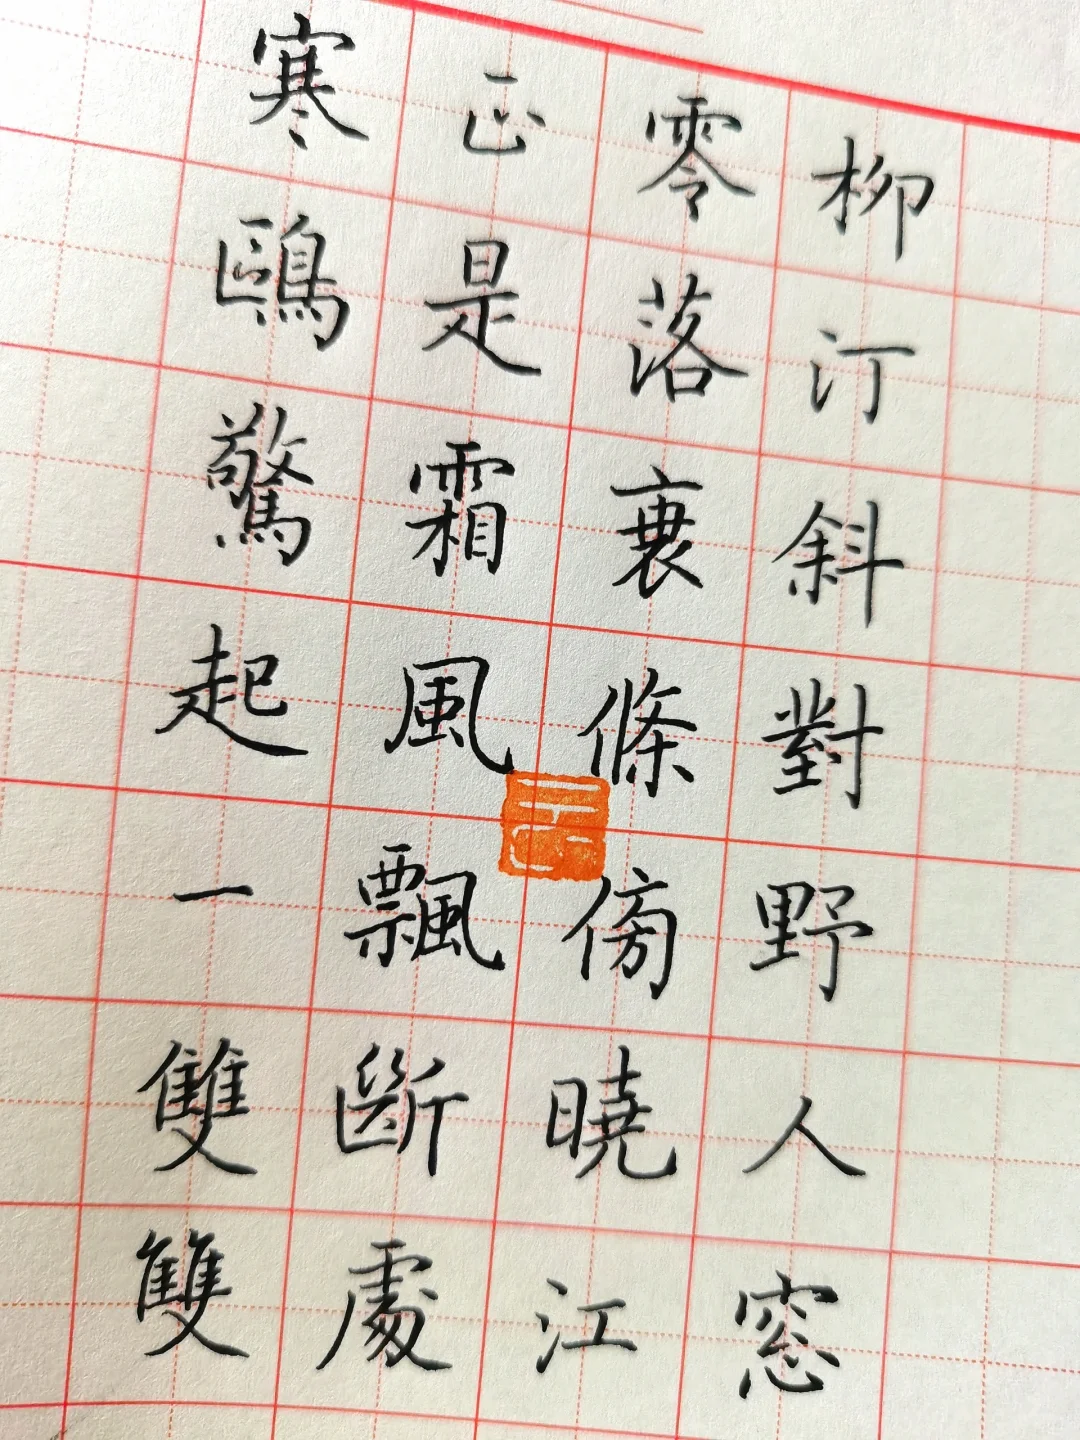 柳汀斜對野人窓
零落衰條傍曉江
正是霜風飄斷處
寒鷗驚起一雙雙